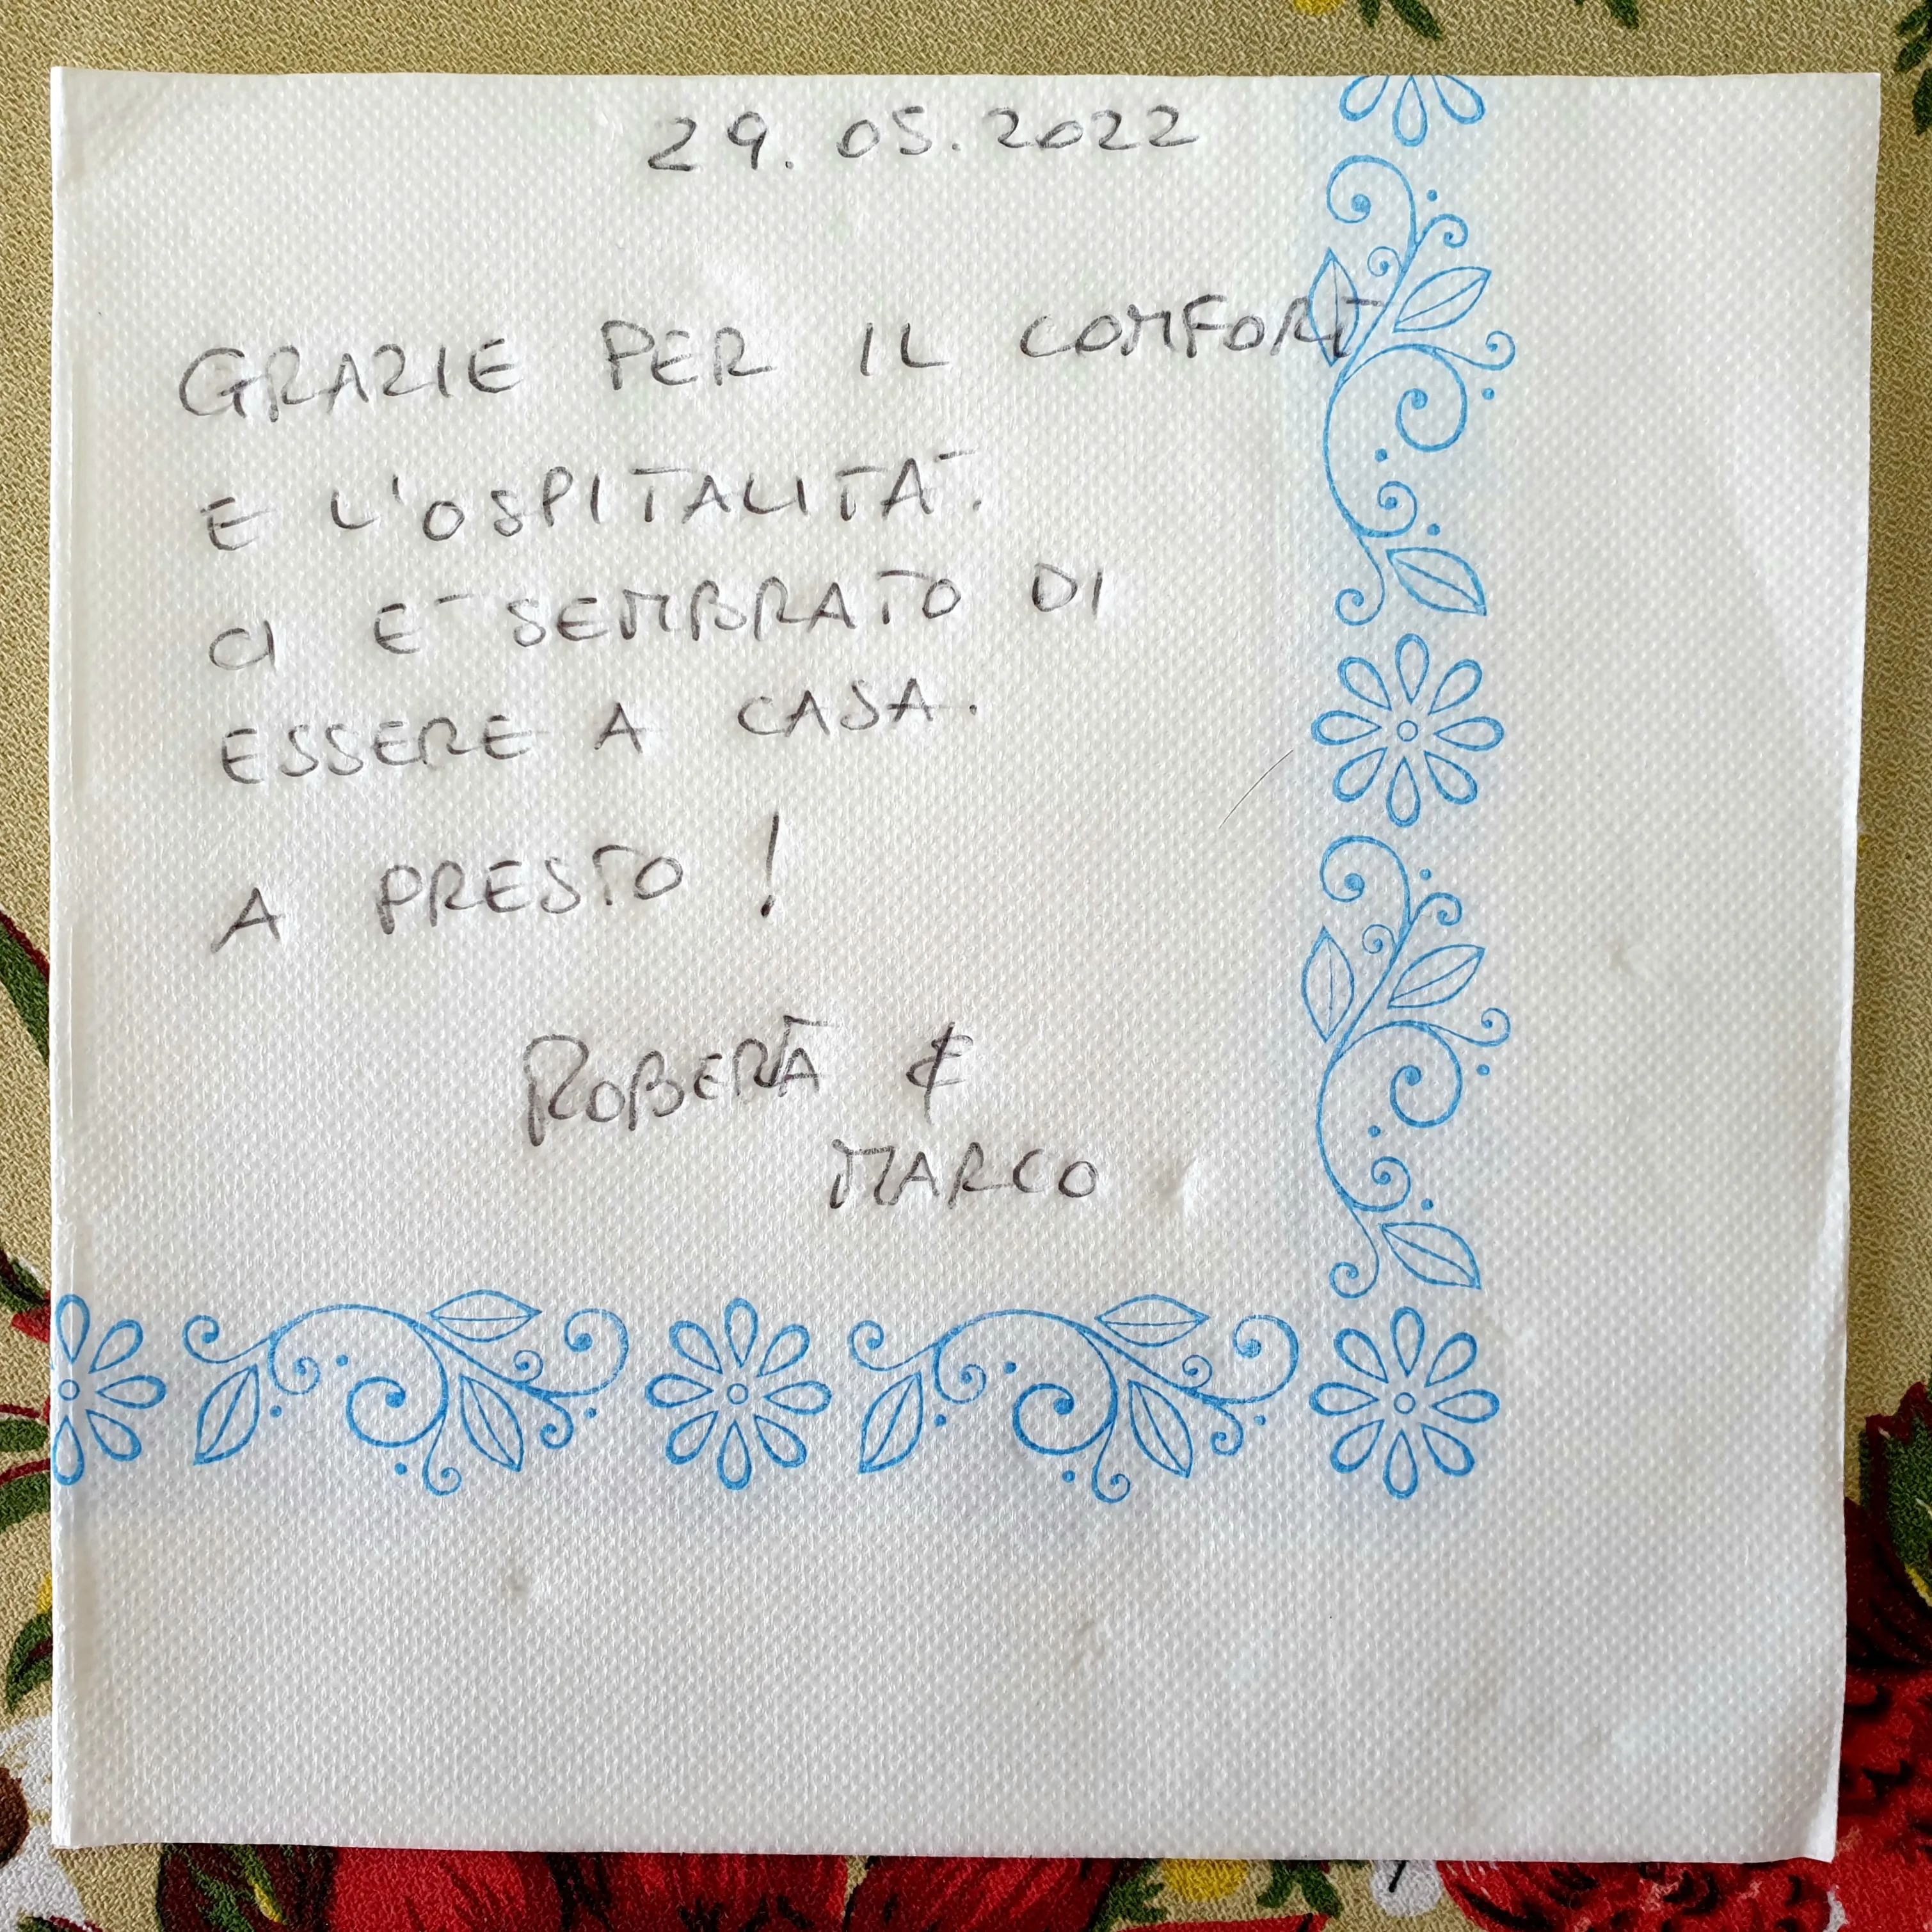 29.05.2022
GRAZIE PER IL COMFORT
E L'OSPITALITA'.
CI E' SEMBRATO DI
ESSERE A CASA.
A PRESTO !
ROBERTA &
MARCO